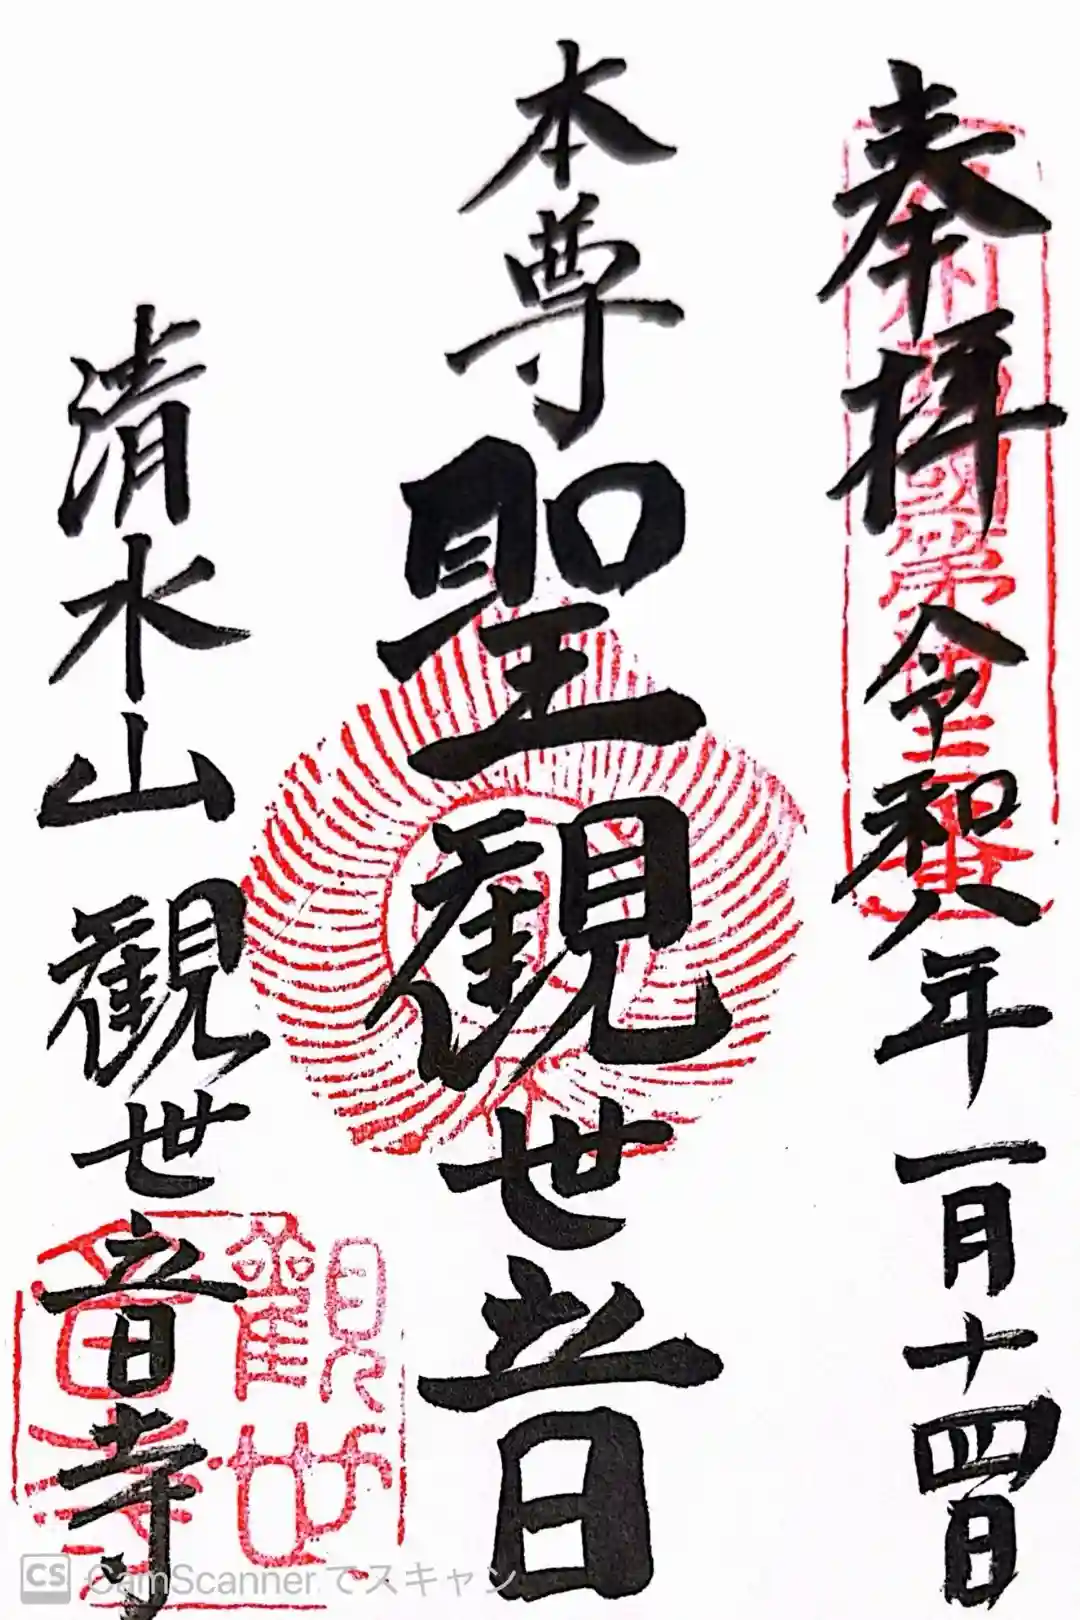 奉拝 令和八年一月十四日
本尊 聖観世音
清水山 観世音寺
觀世音寺
CS CamScannerでスキャン